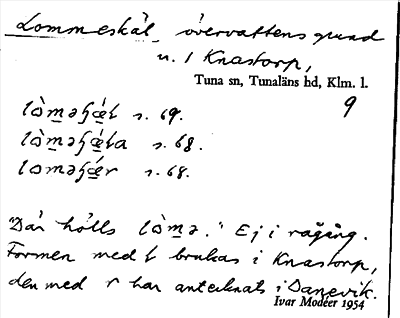 Lommeskät, övervattensgrund
n. i Knastorp,
Tuna sn, Tunaläns hd, Klm. l.
9
lò̀m̱əʃǽt s. 69.
lò̀m̱əʃǽta s. 68.
lomǝʃǽr s. 68.
Där hölls lò̀m̱ə." Ej i rågång.
Formen med t brukas i Knastorp,
den med r har antecknats i Danevik.
Ivar Modéer 1954